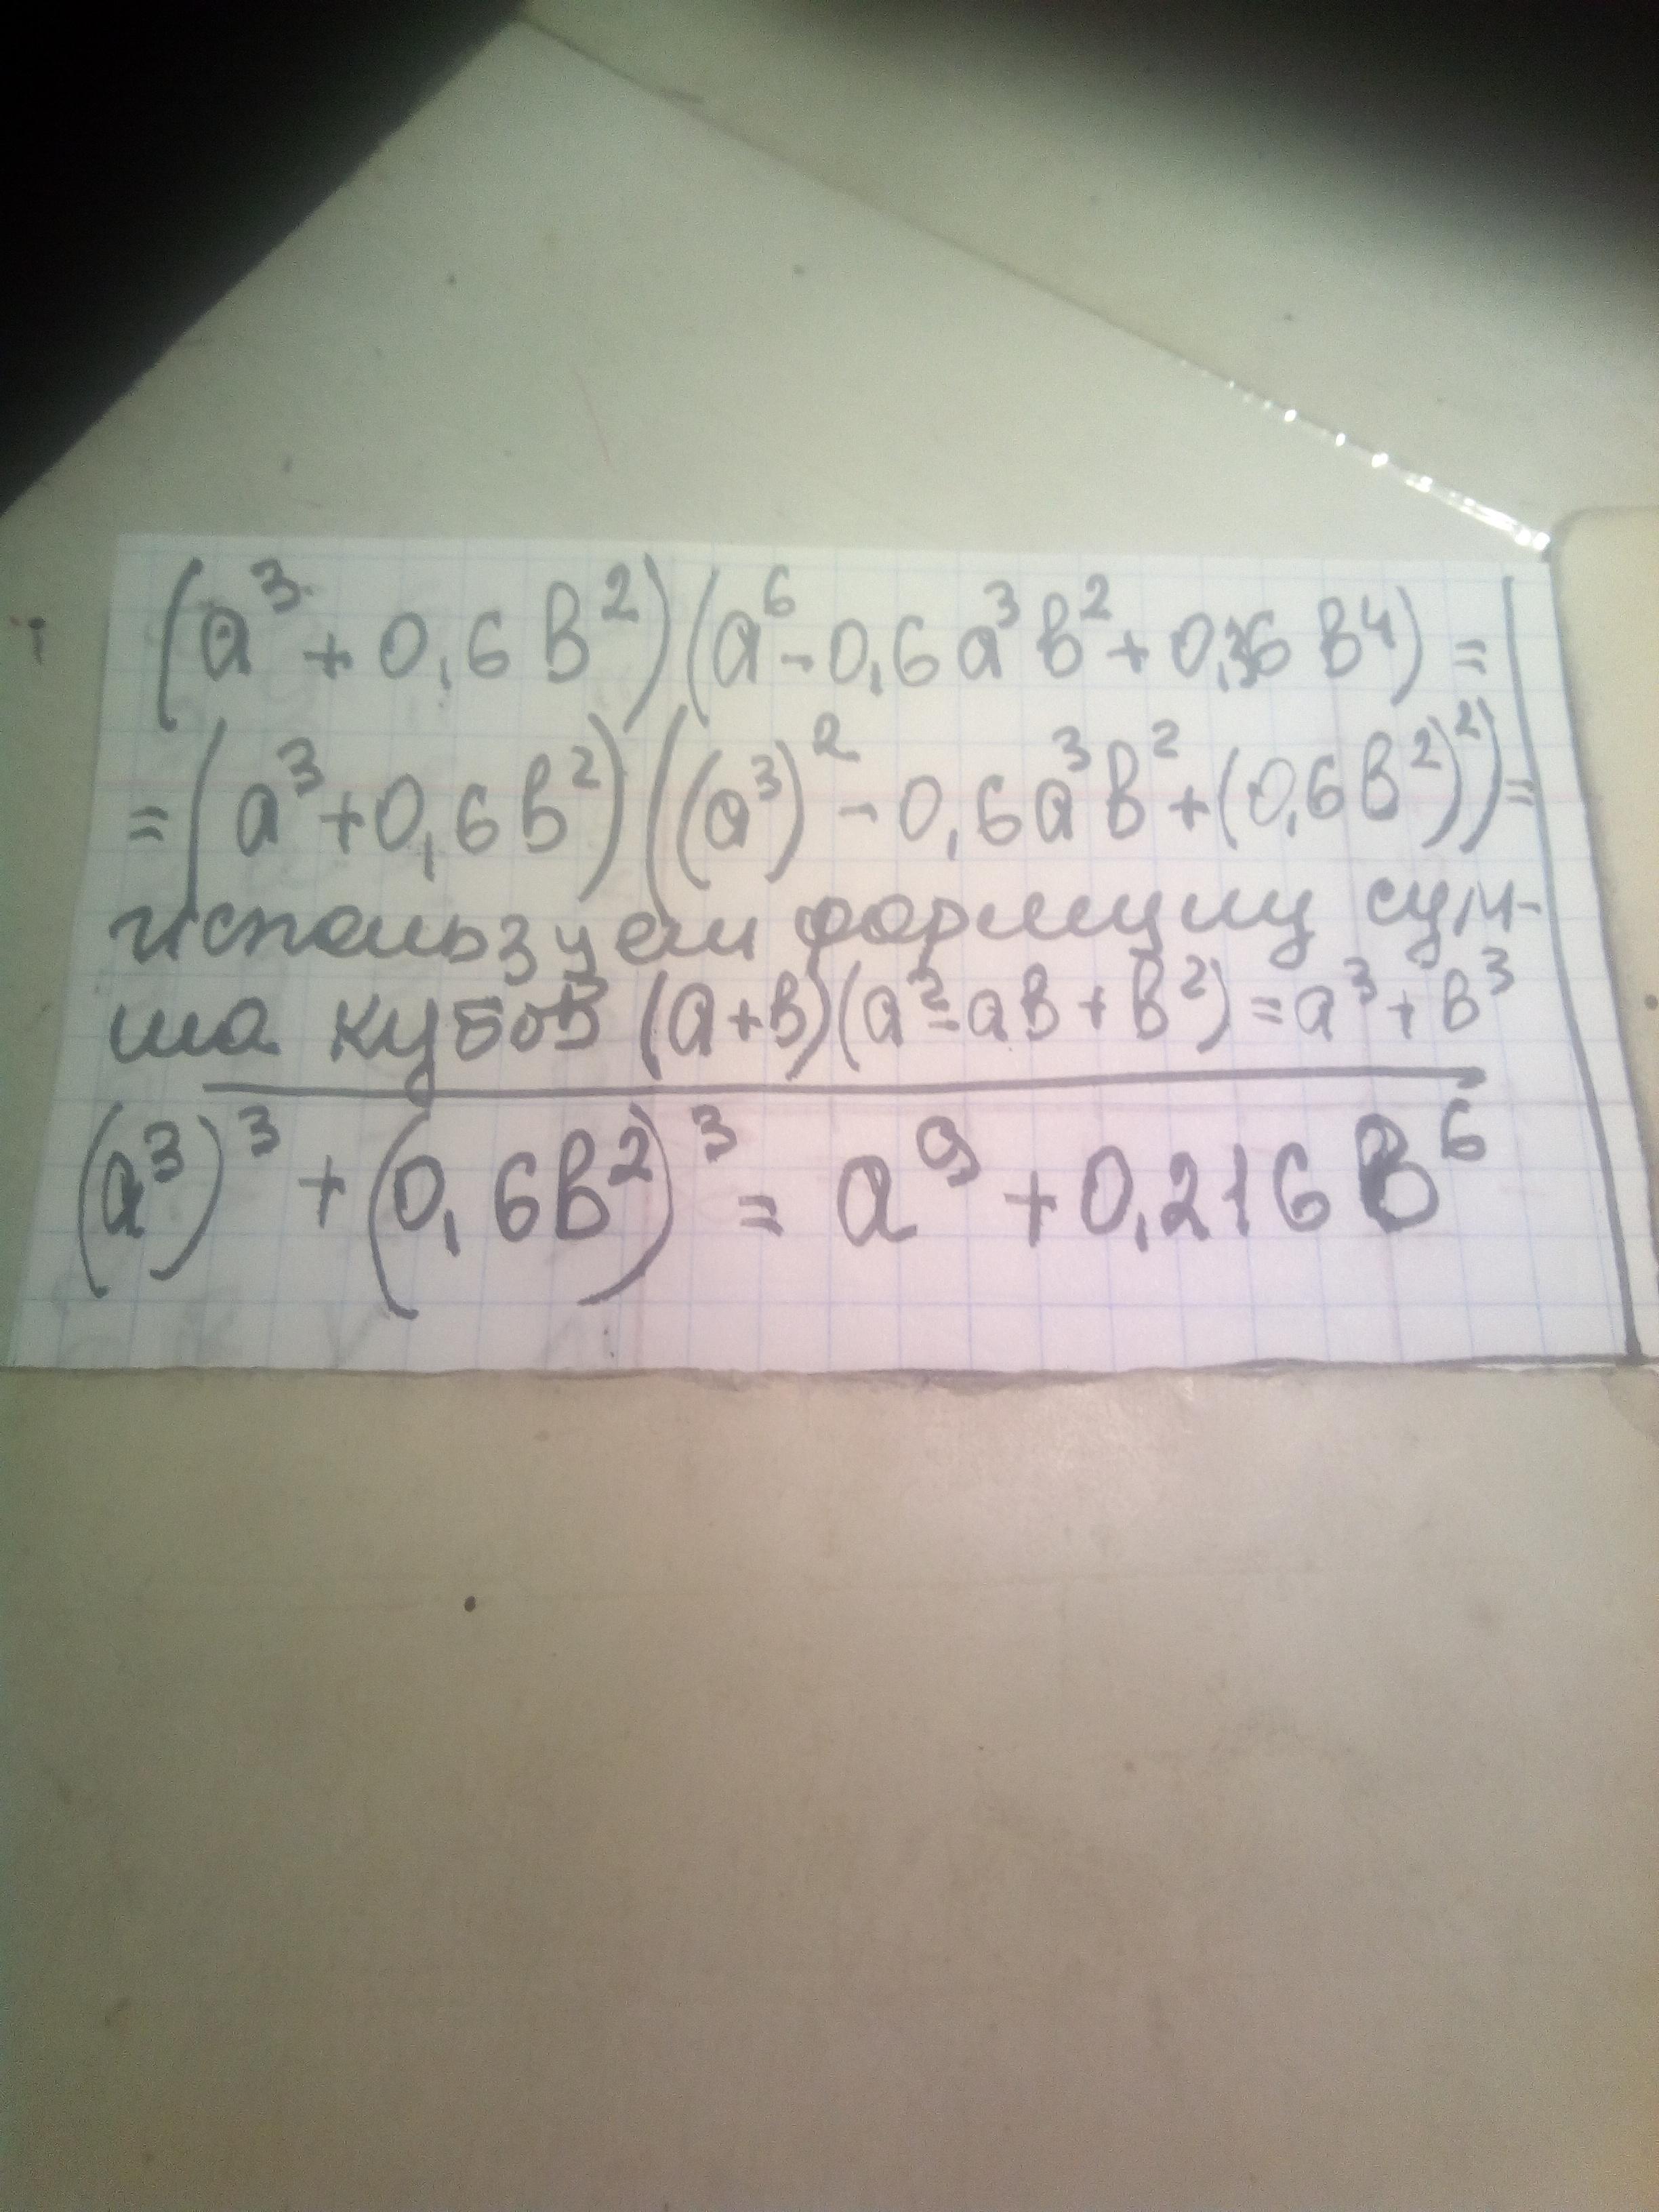 (a³ + 0,6 в²)(a⁶ - 0,6 a³ в² + 0,36 в⁴) =
= (a³ + 0,6 в²)((a³)² - 0,6 a³ в² + (0,6 в²)²) =
используем формулу сум-
ма кубов (a + в)(a² - aв + в²) = a³ + в³
(a³)³ + (0,6в²)³ = a⁹ + 0,216 в⁶